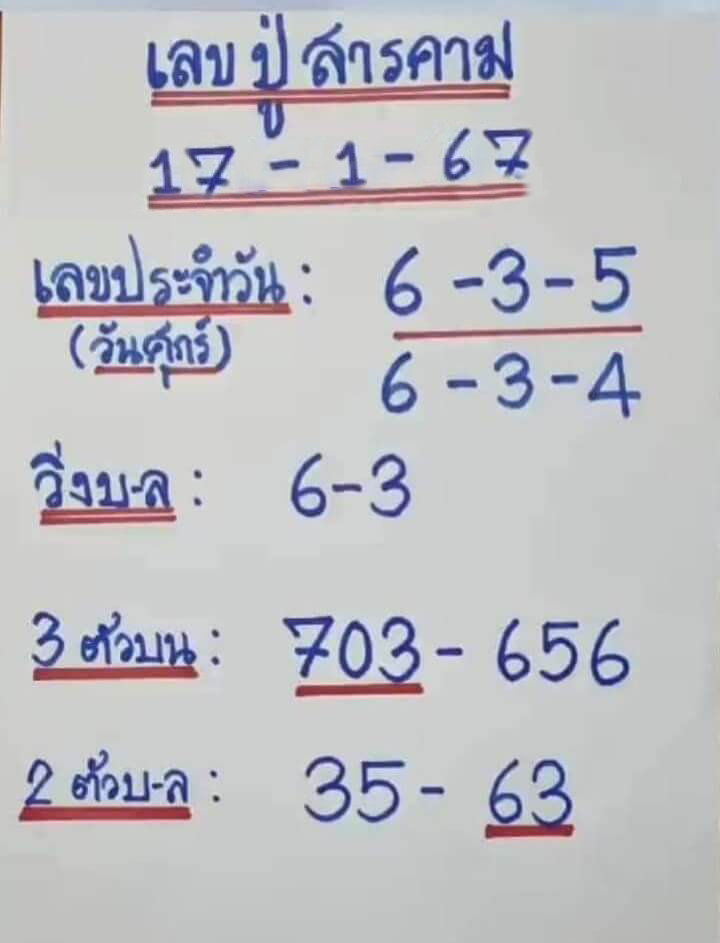 เลขปู่สารคาม
17 - 1 - 67
เลขประจำวัน : 6 - 3 - 5
(วันศุกร์) 6 - 3 - 4
วิ่งบ-ล : 6-3
3 ตัวบน : 703 - 656
2 ตัวบ-ล : 35 - 63